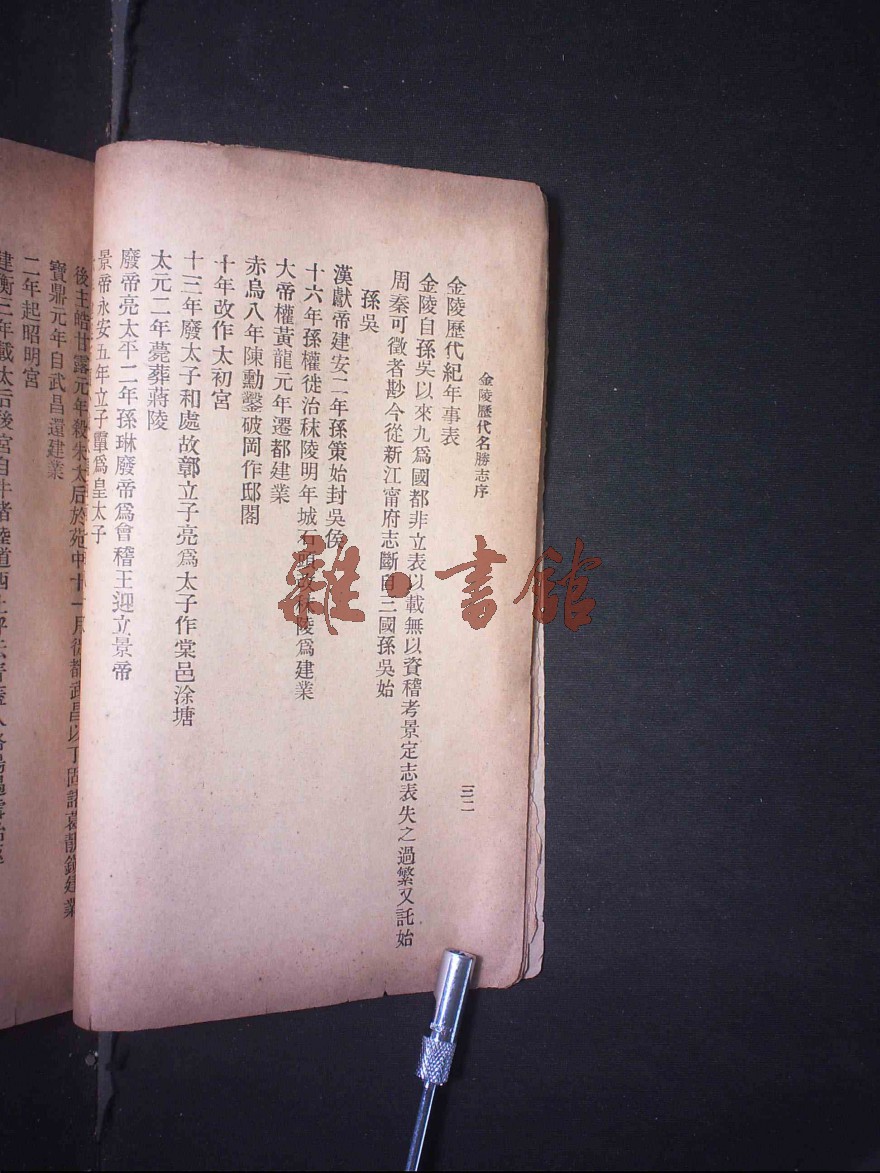 金陵歷代名勝志序
三二
金陵歷代紀年事表
金陵自孫吳以來九爲國都非立表以載無以資稽考景定志表失之過繁又託始
周秦可徵者尠今從新江甯府志斷自三國孫吳始
孫吳
漢獻帝建安二年孫策始封吳侯
十六年孫權徙治秣陵明年城石頭改秣陵爲建業
大帝權黃龍元年遷都建業
赤烏八年陳勳鑿破岡作邸閣
十年改作太初宮
十三年廢太子和處故鄣立子亮爲太子作棠邑涂塘
太元二年薨葬蔣陵
廢帝亮太平二年孫琳廢帝爲會稽王迎立景帝
景帝永安五年立子𩅦爲皇太子
後主皓甘露元年殺朱太后於苑中十一月徙都武昌以丁固諸葛靚鎮建業
寶鼎元年自武昌還建業
二年起昭明宮
建衡三年載太后後宮自牛渚陸道西上
雜·書館